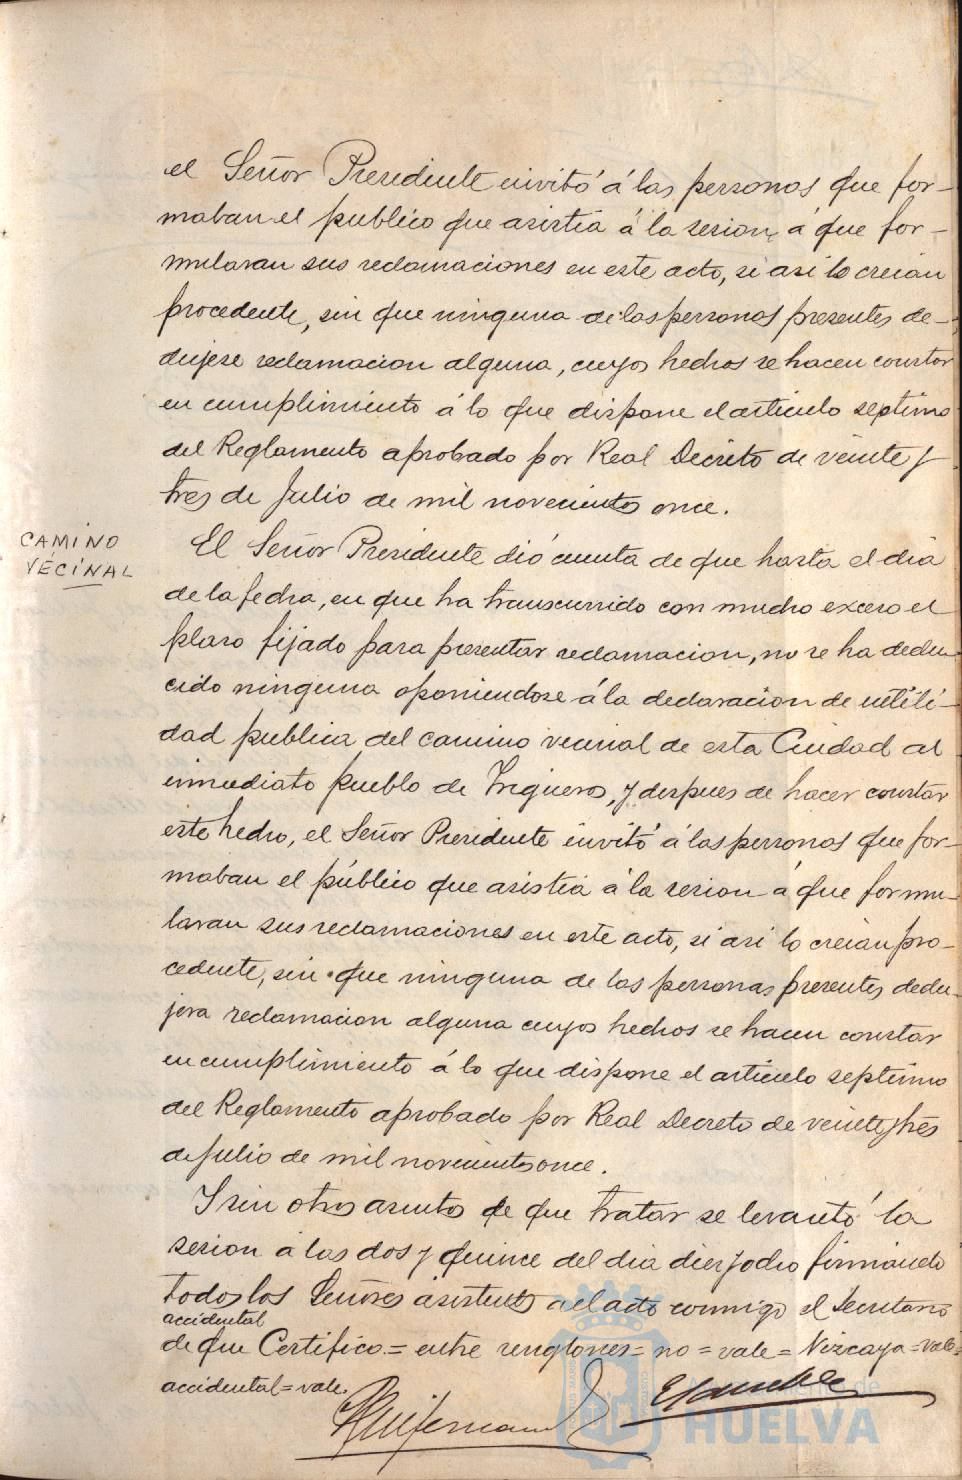 el Señor Presidente invitó á las personas que for-
maban el publico que asistia á la sesion, á que for-
mularan sus reclamaciones en este acto, si asi lo creian
procedente, sin que ninguna de las personas presentes de-
dujese reclamacion alguna, cuyos hechos se hacen constar
en cumplimiento á lo que dispone el articulo septimo
del Reglamento aprobado por Real Decreto de veinte y
tres de Julio de mil novecientos once.
CAMINO
VECINAL
El Señor Presidente dió cuenta de que hasta el dia
de la fecha, en que ha transcurrido con mucho exceso el
plaso fijado para presentar reclamacion, no se ha dedu-
cido ninguna oponiendose á la declaracion de utili-
dad pública del camino vecinal de esta Ciudad al
inmediato pueblo de Trigueros, y despues de hacer constar
este hecho, el Señor Presidente invitó á las personas que for-
maban el público que asistia á la sesion á que formu-
laran sus reclamaciones en este acto, si asi lo creian pro-
cedente, sin que ninguna de las personas presentes dedu-
jera reclamacion alguna cuyos hechos se hacen constar
en cumplimiento á lo que dispone el articulo septimo
del Reglamento aprobado por Real Decreto de veinte y tres
de Julio de mil novecientos once.
Y sin otros asuntos de que tratar se levantó la
sesion á las dos y quince del dia diez y ocho firmando
todos los Señores asistentes al acto conmigo el Secretario
accidental
de que Certifico.= entre renglones = no = vale = Vizcaya = vale =
accidental = vale.
Ayuntamiento de
HUELVA